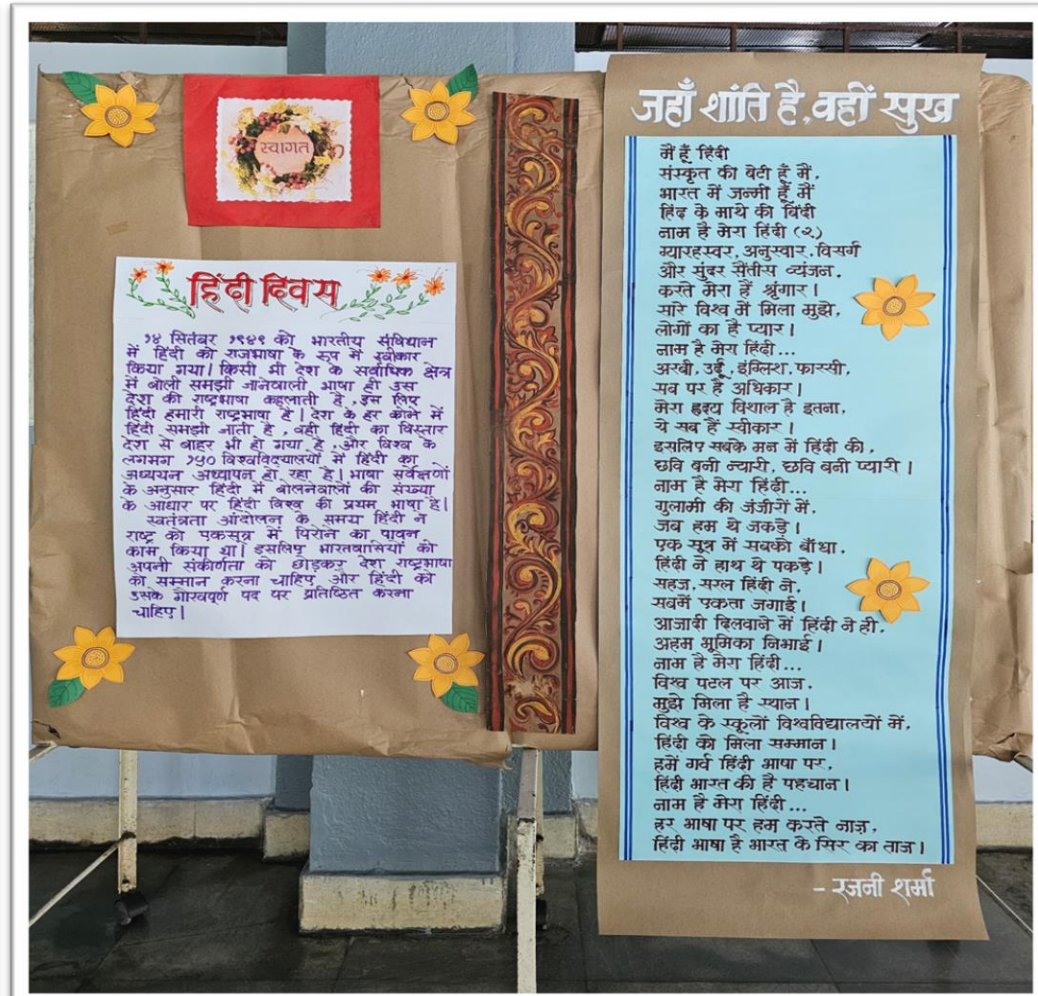 स्वागत
हिंदी दिवस
१४ सितंबर १९४९ को भारतीय संविधान
में हिंदी को राजभाषा के रूप में स्वीकार
किया गया। किसी भी देश के सर्वाधिक क्षेत्र
में बोली समझी जानेवाली भाषा ही उस
देश की राष्ट्रभाषा कहलाती है, इस लिए
हिंदी हमारी राष्ट्रभाषा है। देश के हर कोने में
हिंदी समझी जाती है, वही हिंदी का विस्तार
देश से बाहर भी हो गया है, और विश्व के
लगभग १५० विश्वविद्यालयों में हिंदी का
अध्ययन अध्यापन हो रहा है। भाषा सर्वेक्षणों
के अनुसार हिंदी में बोलनेवालों की संख्या
के आधार पर हिंदी विश्व की प्रथम भाषा है।
स्वतंत्रता आंदोलन के समय हिंदी ने
राष्ट्र को एकसूत्र में पिरोने का पावन
काम किया था। इसलिए भारतवासियों को
अपनी संकीर्णता को छोड़कर देश राष्ट्रभाषा
का सम्मान करना चाहिए और हिंदी को
उसके गौरवपूर्ण पद पर प्रतिष्ठित करना
चाहिए।
जहाँ शांति है, वहीं सुख
मैं हूँ हिंदी
संस्कृत की बेटी हूँ मैं,
भारत में जन्मी हूँ मैं
हिंद के माथे की बिंदी
नाम है मेरा हिंदी (२)
ग्यारहस्वर, अनुस्वार, विसर्ग
और सुंदर सैंतीस व्यंजन,
करते मेरा हैं श्रृंगार।
सारे विश्व में मिला मुझे,
लोगों का है प्यार।
नाम है मेरा हिंदी...
अरबी, उर्दू, इंग्लिश, फारसी,
सब पर है अधिकार।
मेरा हृदय विशाल है इतना,
ये सब हैं स्वीकार।
इसलिए सबके मन में हिंदी की,
छवि बनी न्यारी, छवि बनी प्यारी।
नाम है मेरा हिंदी...
गुलामी की जंजीरों में,
जब हम थे जकड़े।
एक सूत्र में सबको बाँधा,
हिंदी ने हाथ थे पकड़े।
सहज, सरल हिंदी ने,
सबमें एकता जगाई।
आजादी दिलवाने में हिंदी ने ही,
अहम भूमिका निभाई।
नाम है मेरा हिंदी...
विश्व पटल पर आज,
मुझे मिला है स्थान।
विश्व के स्कूलों विश्वविद्यालयों में,
हिंदी को मिला सम्मान।
हमें गर्व हिंदी भाषा पर,
हिंदी भारत की है पहचान।
नाम है मेरा हिंदी...
हर भाषा पर हम करते नाज़,
हिंदी भाषा है भारत के सिर का ताज।
- रजनी शर्मा